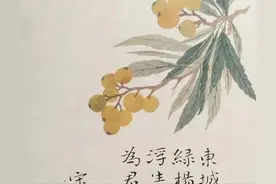 東城
綠楊
浮生
為君
宋